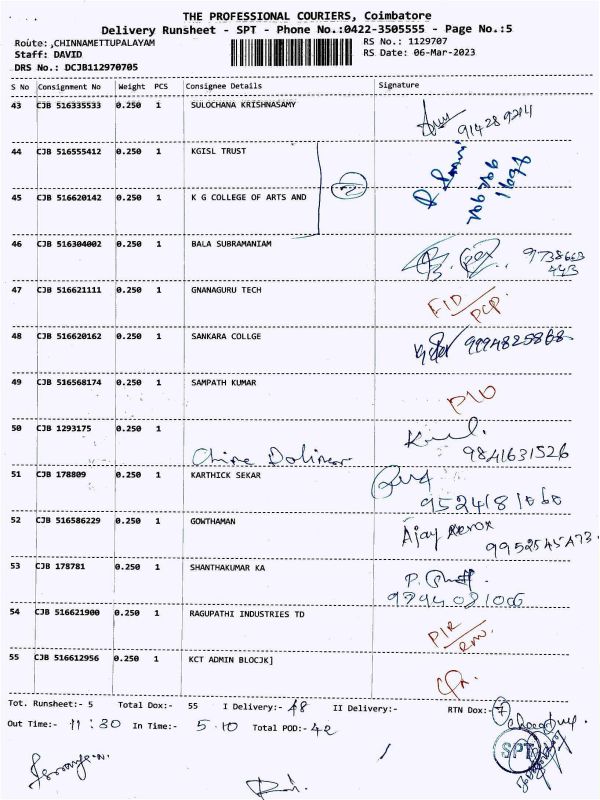 THE PROFESSIONAL COURIERS, Coimbatore
Delivery Runsheet - SPT - Phone No.:0422-3505555 - Page No.:5
Route: ,CHINNAMETTUPALAYAM RS No.: 1129707
Staff: DAVID RS Date: 06-Mar-2023
DRS No.: DCJB112970705
S No Consignment No Weight PCS Consignee Details Signature
43 CJB 516335533 0.250 1 SULOCHANA KRISHNASAMY
914289214
44 CJB 516555412 0.250 1 KGISL TRUST
2
45 CJB 516620142 0.250 1 K G COLLEGE OF ARTS AND
46 CJB 516304002 0.250 1 BALA SUBRAMANIAM
9738663
443
47 CJB 516621111 0.250 1 GNANAGURU TECH
FID
PCP.
48 CJB 516620162 0.250 1 SANKARA COLLGE
9994825868
49 CJB 516568174 0.250 1 SAMPATH KUMAR
PID
50 CJB 1293175 0.250 1
9841631526
51 CJB 178809 0.250 1 KARTHICK SEKAR
9524181060
52 CJB 516586229 0.250 1 GOWTHAMAN
Ajay xerox
9952545473
53 CJB 178781 0.250 1 SHANTHAKUMAR KA
9894081006
54 CJB 516621900 0.250 1 RAGUPATHI INDUSTRIES TD
55 CJB 516612956 0.250 1 KCT ADMIN BLOCJK]
Tot. Runsheet:- 5 Total Dox:- 55 I Delivery:- 48 II Delivery:- RTN Dox:- 7
Out Time:- 11:30 In Time:- 5.10 Total POD:- 42
SPT